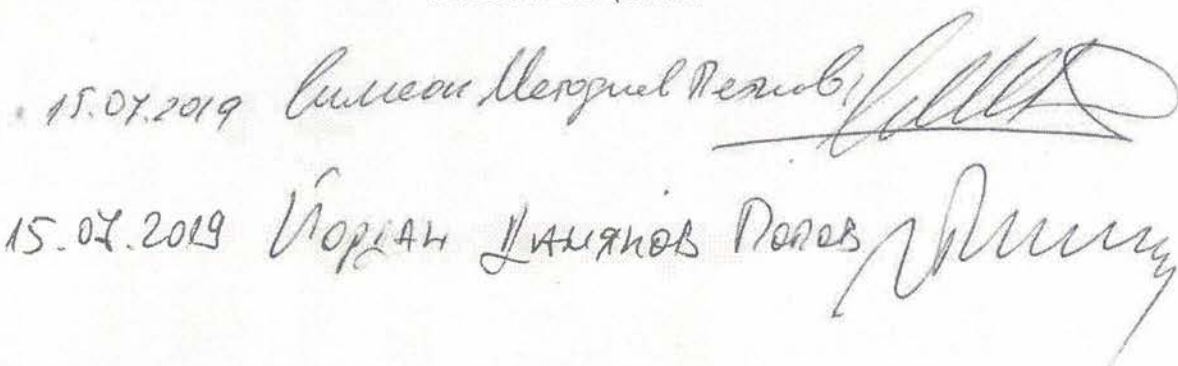 15.07.2019 Симеон Методиев Пешов
15.07.2019 Йордан Дамянов Попов